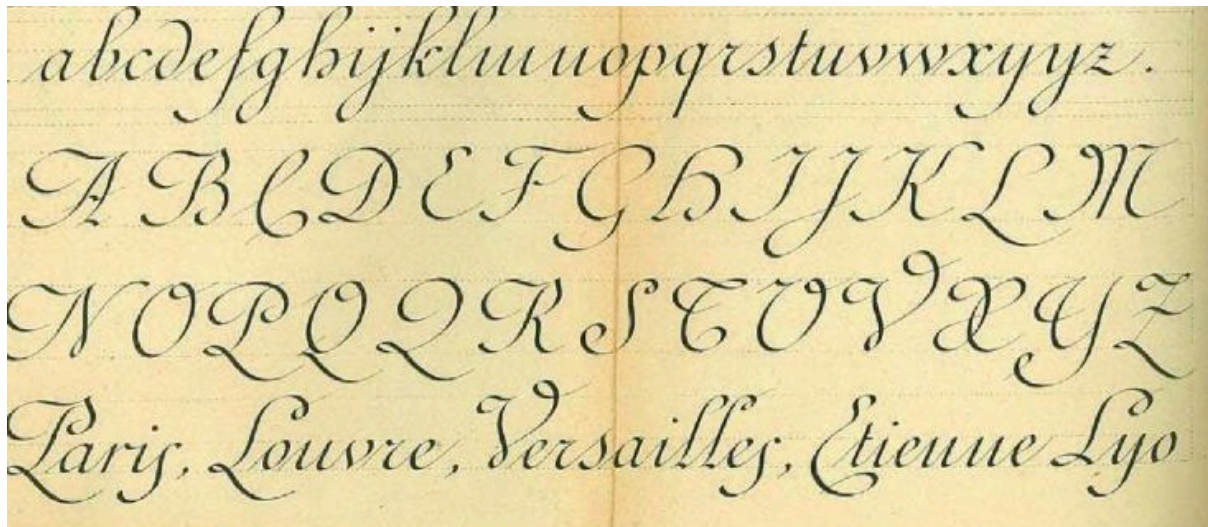 abcdefghijklmnopqrstuvwxyyz.
A B C D E F G H I J K L M
N O P Q Q R S T U V X Y Z
Paris, Louvre, Versailles, Etienne Lyo